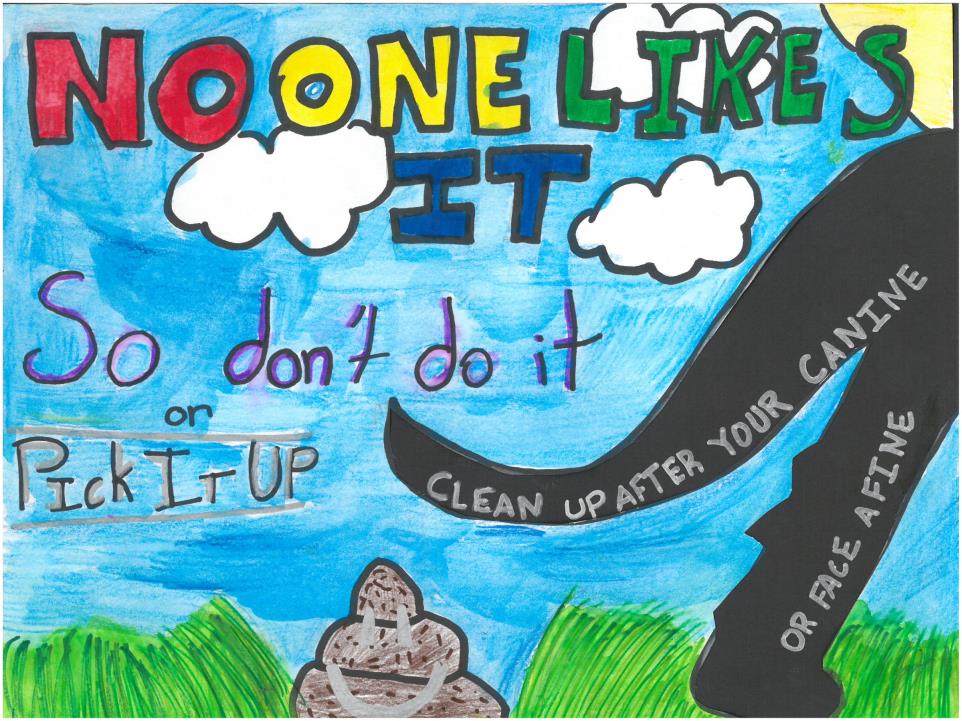 NO ONE LIKES
IT
So don't do it
or
PIck IT UP
CLEAN UP AFTER YOUR CANINE
OR FACE A FINE